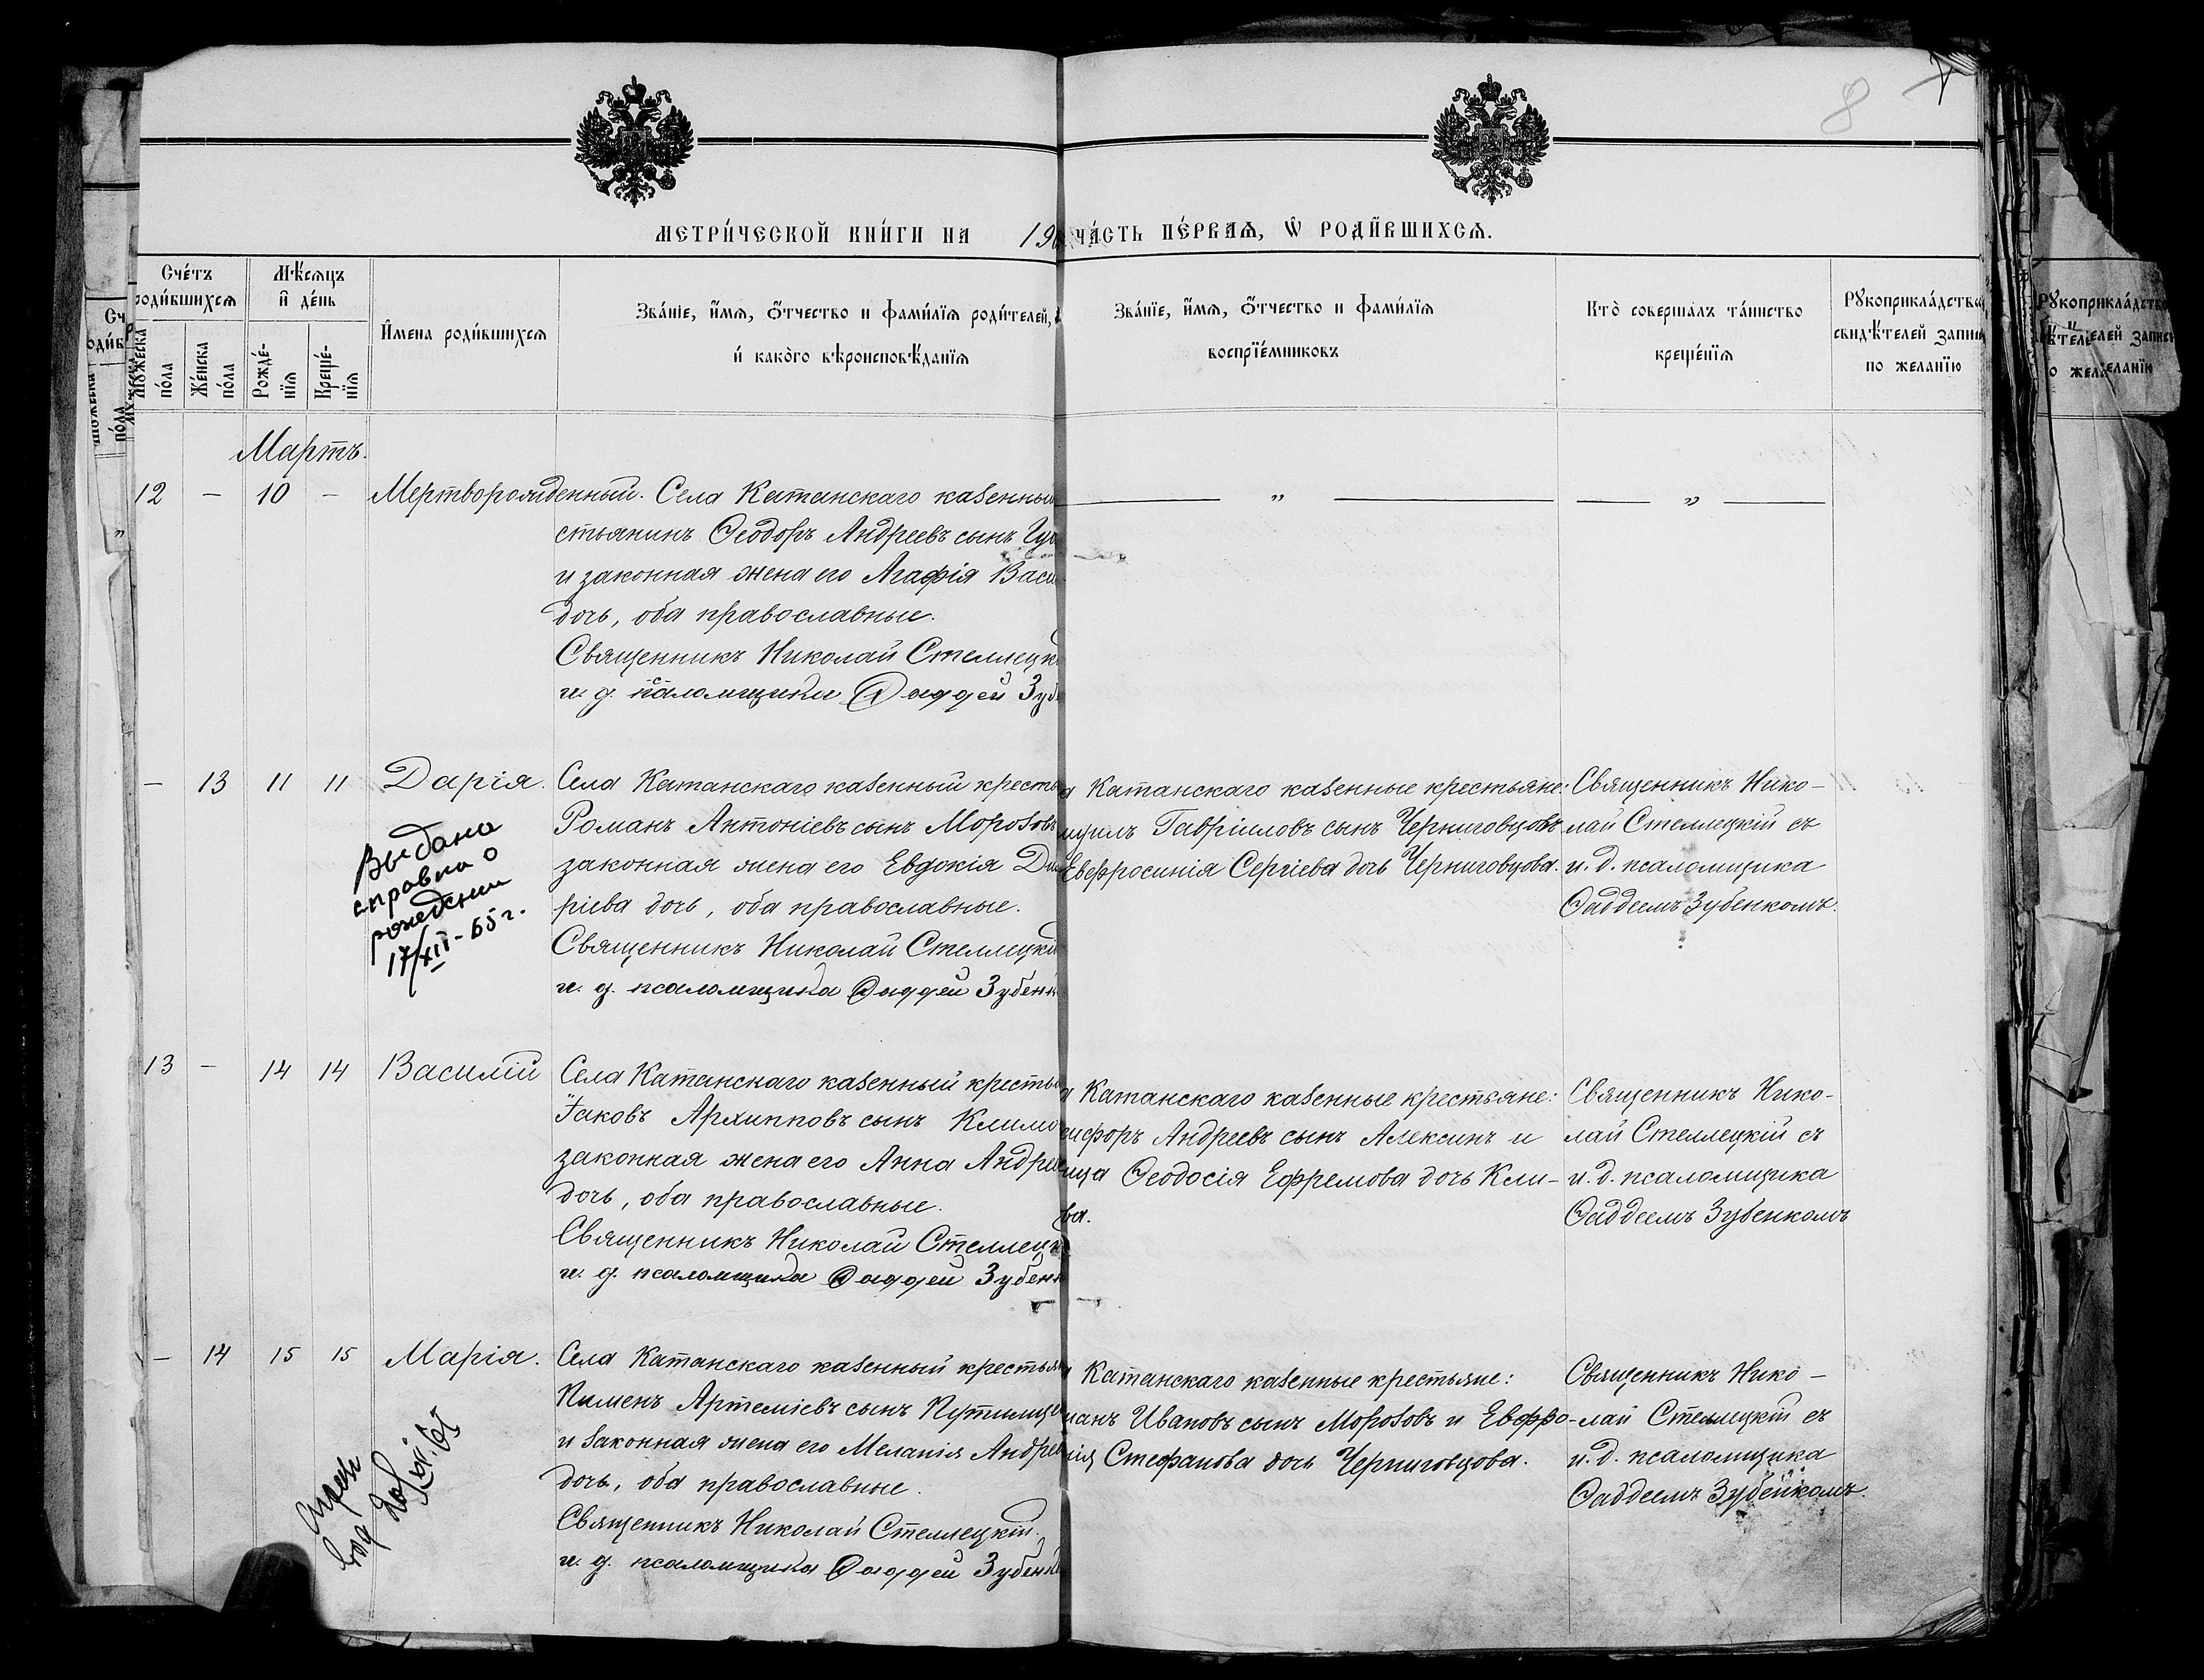 8
МЕТРИЧЕСКОЙ КНИГИ НА 19
ЧАСТЬ ПЕРВАЯ, Ѡ РОДИВШИХСЯ.
Счетъ родившихся
Мужеска пола
Женска пола
Мѣсяцъ и день
Рожденія
Крещенія
Имена родившихся
Званіе, имя, отчество и фамилія родителей,
и какого вѣроисповѣданія
Званіе, имя, отчество и фамилія
воспріемниковъ
Кто совершалъ таинство
крещенія
Рукоприкладство
свидѣтелей записи
по желанію
Мартъ.
12 — 10 — Мертворожденный. Села Катанскаго казенный
стьянинъ Ѳеодоръ Андреевъ сынъ
и законная жена его Агафія Васи
дочь, оба православные.
Священникъ Николай Стеллецк
и. д. псаломщика Ѳаддей Зуб
— " —
— " —
— 13 11 11 Дарія.
Села Катанскаго казенный кресть
Романъ Антоніевъ сынъ Морозовъ
законная жена его Евдокія Ди
ріева дочь, оба православные.
Священникъ Николай Стеллецкі
и. д. псаломщика Ѳаддей Зубенк
а Катанскаго казенные крестьяне:
Гавріиловъ сынъ Черниговцовъ
Евфросинія Сергіева дочь Черниговцова.
Священникъ Нико-
лай Стеллецкій съ
и. д. псаломщика
Ѳаддеемъ Зубенкомъ.
Выдана
справка о
рождении
17/XII-65 г.
13 — 14 14 Василій
Села Катанскаго казенный кресть
Іаковъ Архипповъ сынъ Климо
законная жена его Анна Андрее
дочь, оба православные.
Священникъ Николай Стеллецк
и. д. псаломщика Ѳаддей Зубенк
а Катанскаго казенные крестьяне:
сифоръ Андреевъ сынъ Алексинъ и
ица Ѳеодосія Ефремова дочь Кли-
ва.
Священникъ Нико-
лай Стеллецкій съ
и. д. псаломщика
Ѳаддеемъ Зубенкомъ
— 14 15 15 Марія.
Села Катанскаго казенный крестьян
Пименъ Артеміевъ сынъ Путилиц
и законная жена его Меланія Андрее
дочь, оба православные.
Священникъ Николай Стеллецкій.
и. д. псаломщика Ѳаддей Зубенк
Катанскаго казенные крестьяне:
манъ Ивановъ сынъ Морозовъ и Евфро-
нія Стефанова дочь Черниговцова.
Священникъ Нико-
лай Стеллецкій съ
и. д. псаломщика
Ѳаддеемъ Зубенкомъ.